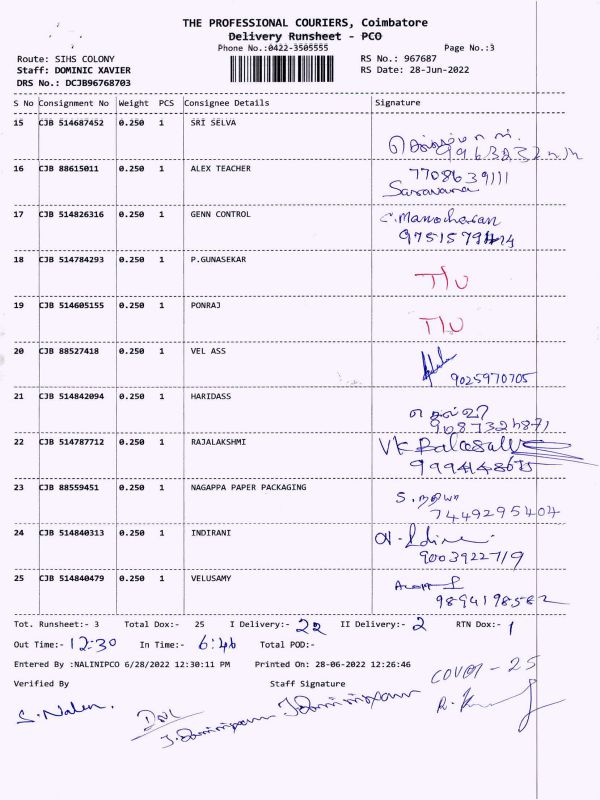 THE PROFESSIONAL COURIERS, Coimbatore
Delivery Runsheet - PCO
Phone No.:0422-3505555 Page No.:3
Route: SIHS COLONY RS No.: 967687
Staff: DOMINIC XAVIER RS Date: 28-Jun-2022
DRS No.: DCJB96768703
S No Consignment No Weight PCS Consignee Details Signature
15 CJB 514687452 0.250 1 SRI SELVA
16 CJB 88615011 0.250 1 ALEX TEACHER 7708639111
Saravana
17 CJB 514826316 0.250 1 GENN CONTROL C. Manocharan
18 CJB 514784293 0.250 1 P.GUNASEKAR T/U
19 CJB 514605155 0.250 1 PONRAJ T/U
20 CJB 88527418 0.250 1 VEL ASS
9025970705
21 CJB 514842094 0.250 1 HARIDASS
22 CJB 514787712 0.250 1 RAJALAKSHMI VK
23 CJB 88559451 0.250 1 NAGAPPA PAPER PACKAGING
7449295404
24 CJB 514840313 0.250 1 INDIRANI
9003922719
25 CJB 514840479 0.250 1 VELUSAMY
9894198582
Tot. Runsheet:- 3 Total Dox:- 25 I Delivery:- 22 II Delivery:- 2 RTN Dox:- 1
Out Time:- 12:30 In Time:- 6:46 Total POD:-
Entered By :NALINIPCO 6/28/2022 12:30:11 PM Printed On: 28-06-2022 12:26:46
COVER - 25
Verified By Staff Signature
S. Nalen.